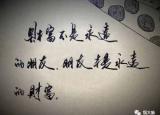 财富不是永远
的朋友,朋友才是永远
的财富。